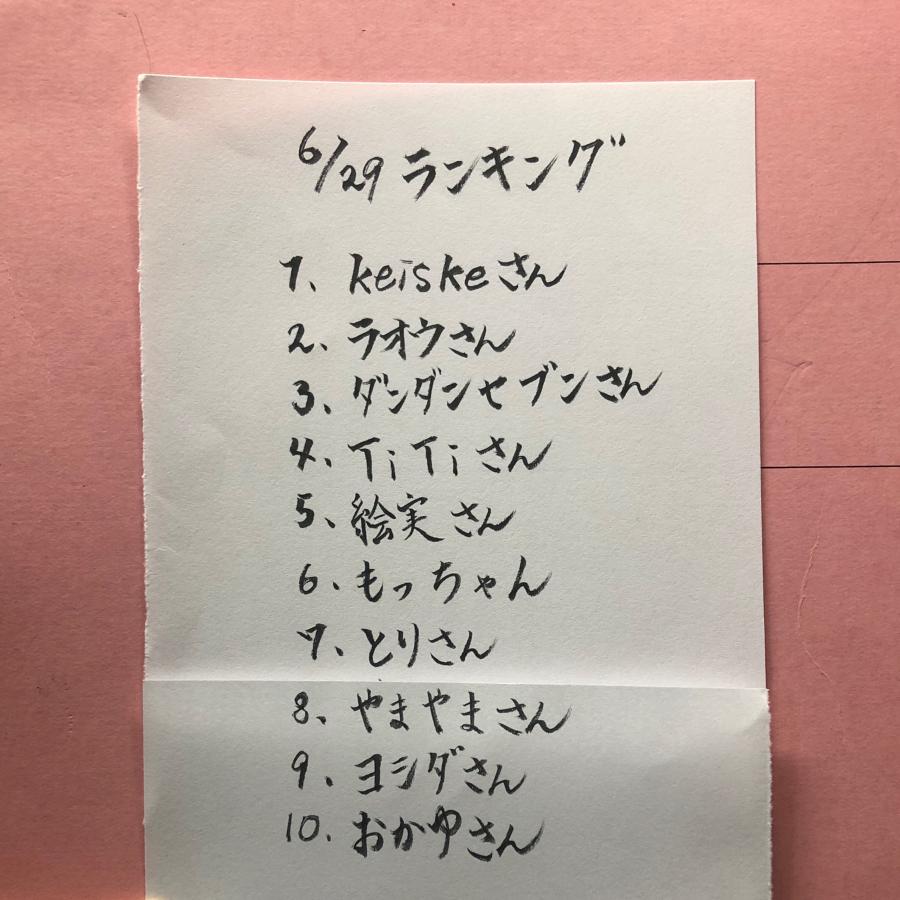 6/29 ランキング
1、keiskeさん
2、ラオウさん
3、ダンダンセブンさん
4、TiTiさん
5、絵実さん
6、もっちゃん
7、とりさん
8、やまやまさん
9、ヨシダさん
10、おかゆさん